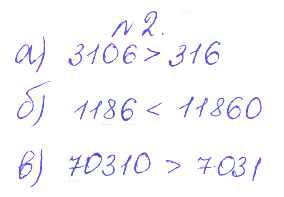 № 2.
а) 3106 > 316
б) 1186 < 11860
в) 70310 > 7031